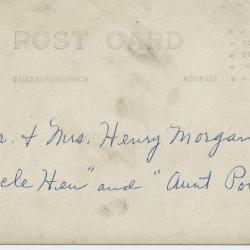 POST CARD
CORRESPONDENCE ADDRESS
r. & Mrs. Henry Morgan
cle Hen" and "Aunt Po